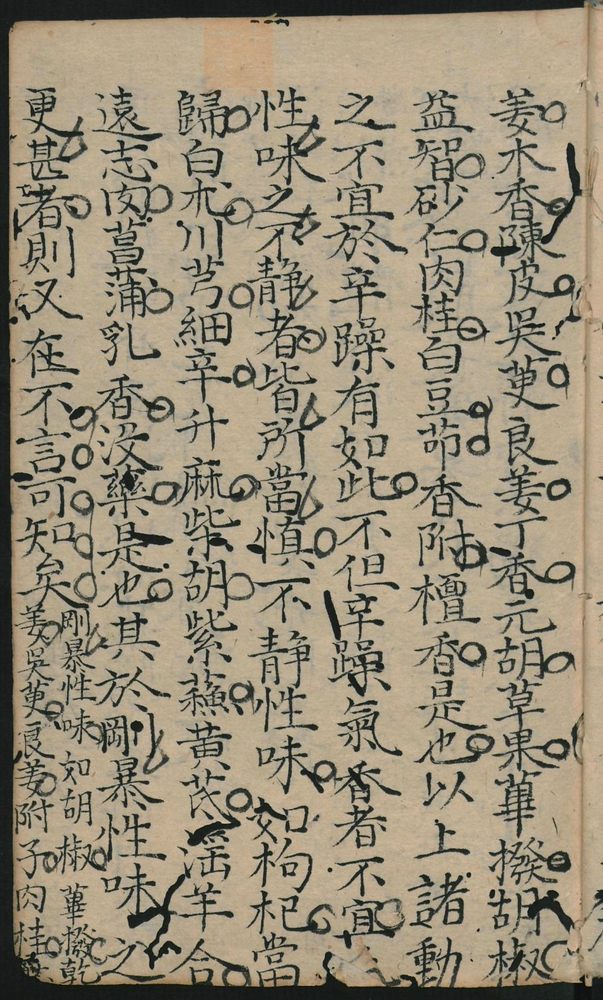 姜木香陳皮吳萸良姜丁香元胡草果蓽撥胡椒
益智砂仁肉桂白豆茆香附檀香是也以上諸動
之不宜於辛躁有如此不但辛躁氣香者不宜
性味之不静者皆所當慎不静性味如枸杞當
歸白朮川芎細辛升麻柴胡紫蘓黃芪淫羊合
遠志肉菖蒲乳香沒藥是也其於剛暴性味之
更甚者則又在不言可知矣
剛暴性味如胡椒蓽撥乾
姜吳萸良姜附子肉桂